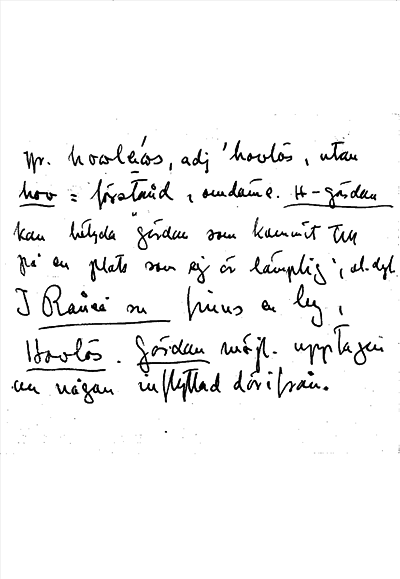 Jfr. hovlös, adj 'hovlös, utan
hov = förstånd, omdöme. H-gården
kan betyda "gården som kommit till
på en plats som ej är lämplig", el. dyl.
I Råneå sn finns en by,
Hovlös. Gården möjl. upptagen
av någon inflyttad därifrån.